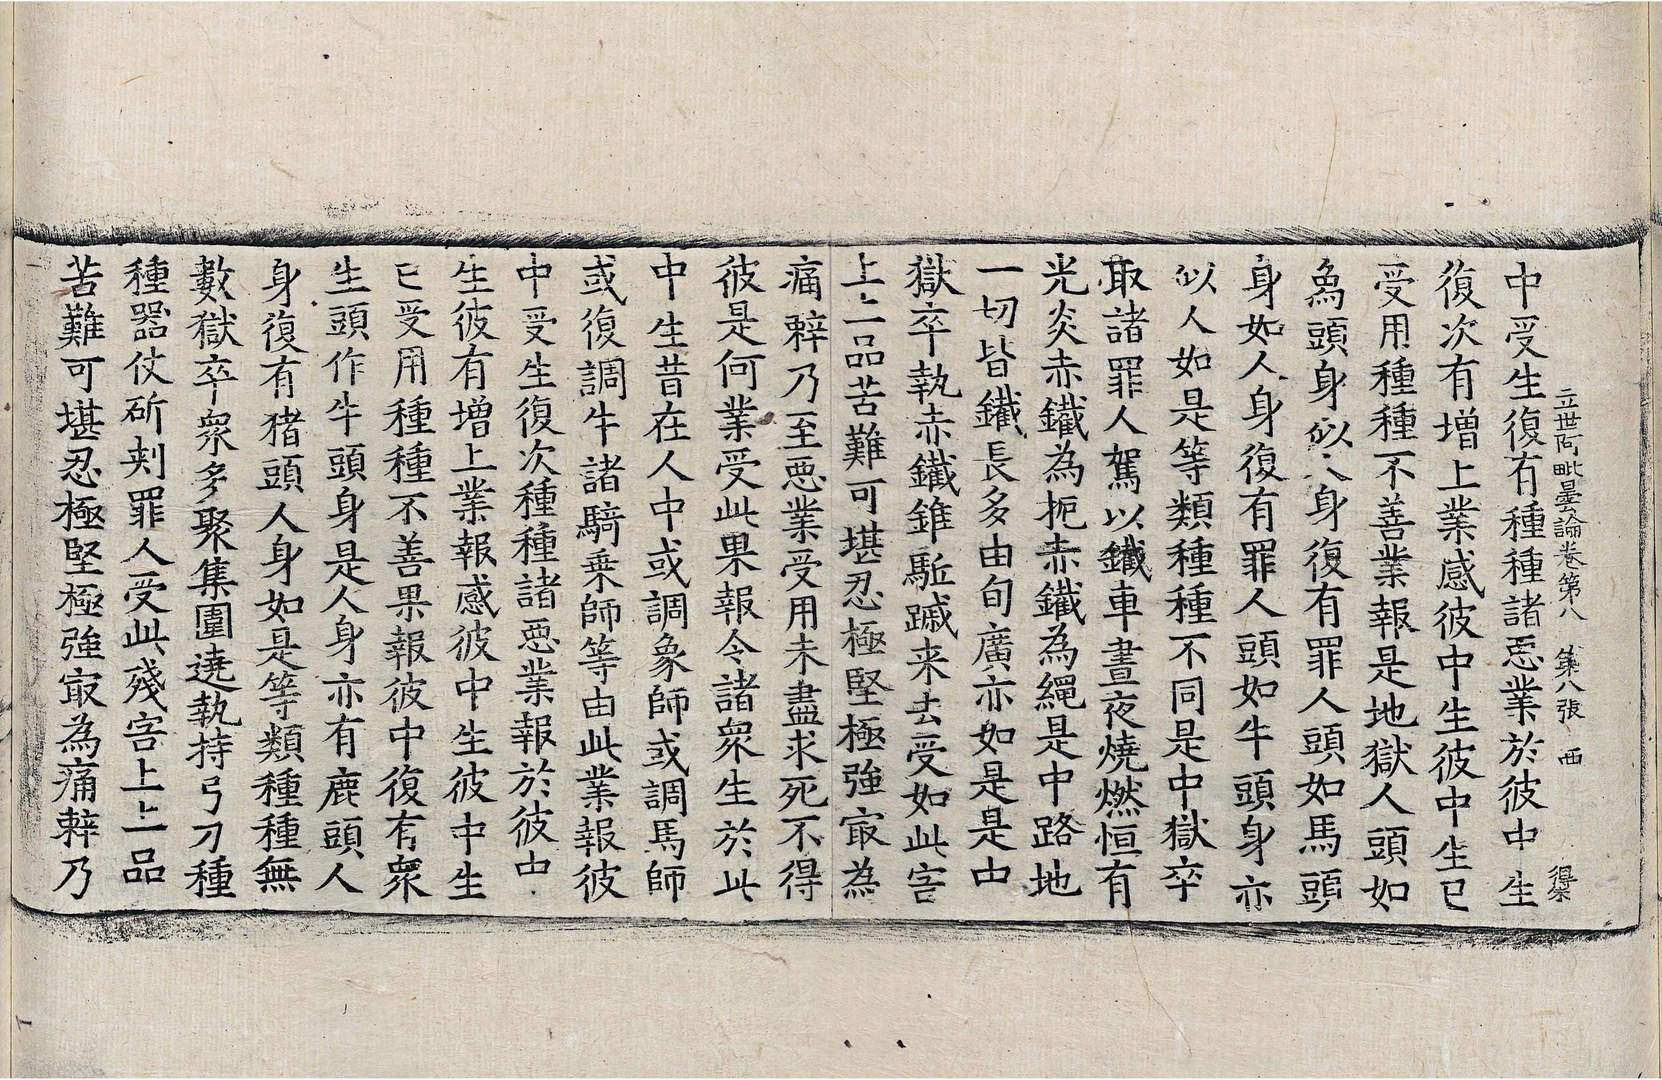 立世阿毗曇論卷第八 第八張 西
中受生復有種種諸惡業於彼中生
復次有增上業感彼中生彼中生已
受用種種不善業報是地獄人頭如
爲頭身似人身復有罪人頭如馬頭
身如人身復有罪人頭如牛頭身亦
似人如是等類種種不同是中獄卒
取諸罪人駕以鐵車晝夜燒燃恒有
光炎赤鐵為扼赤鐵為繩是中路地
一切皆鐵長多由旬廣亦如是是中
獄卒執赤鐵錐駈蹴来去受如此害
上上品苦難可堪忍極堅極強㝡為
痛㓨乃至惡業受用未盡求死不得
彼是何業受此果報令諸衆生於此
中生昔在人中或調象師或調馬師
或復調牛諸騎乗師等由此業報彼
中受生復次種種諸惡業報於彼中
生彼有增上業報感彼中生彼中生
已受用種種不善果報彼中復有衆
生頭作牛頭身是人身亦有鹿頭人
身復有猪頭人身如是等類種種無
數獄卒衆多聚集圍遶執持弓刀種
種器仗斫刾罪人受此殘害上上品
苦難可堪忍極堅極強㝡為痛㓨乃